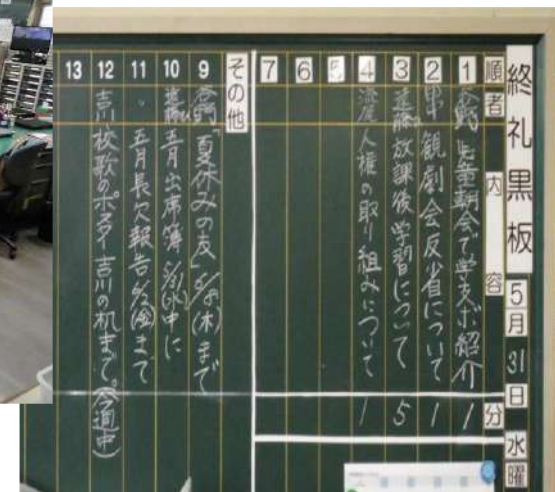 終礼黒板 5月31日水曜
順者 内容 分
1 児童朝会で学支ボ紹介 1
2 観劇会反省について 1
3 遠藤 放課後学習について 5
4 人権の取り組みについて 1
5
6
7
その他
9 「夏休みの友」 まで
10 五月出席簿 中に
11 五月長欠報告 まで
12 吉川 校歌のポスター 吉川の机まで。(今週中)
13